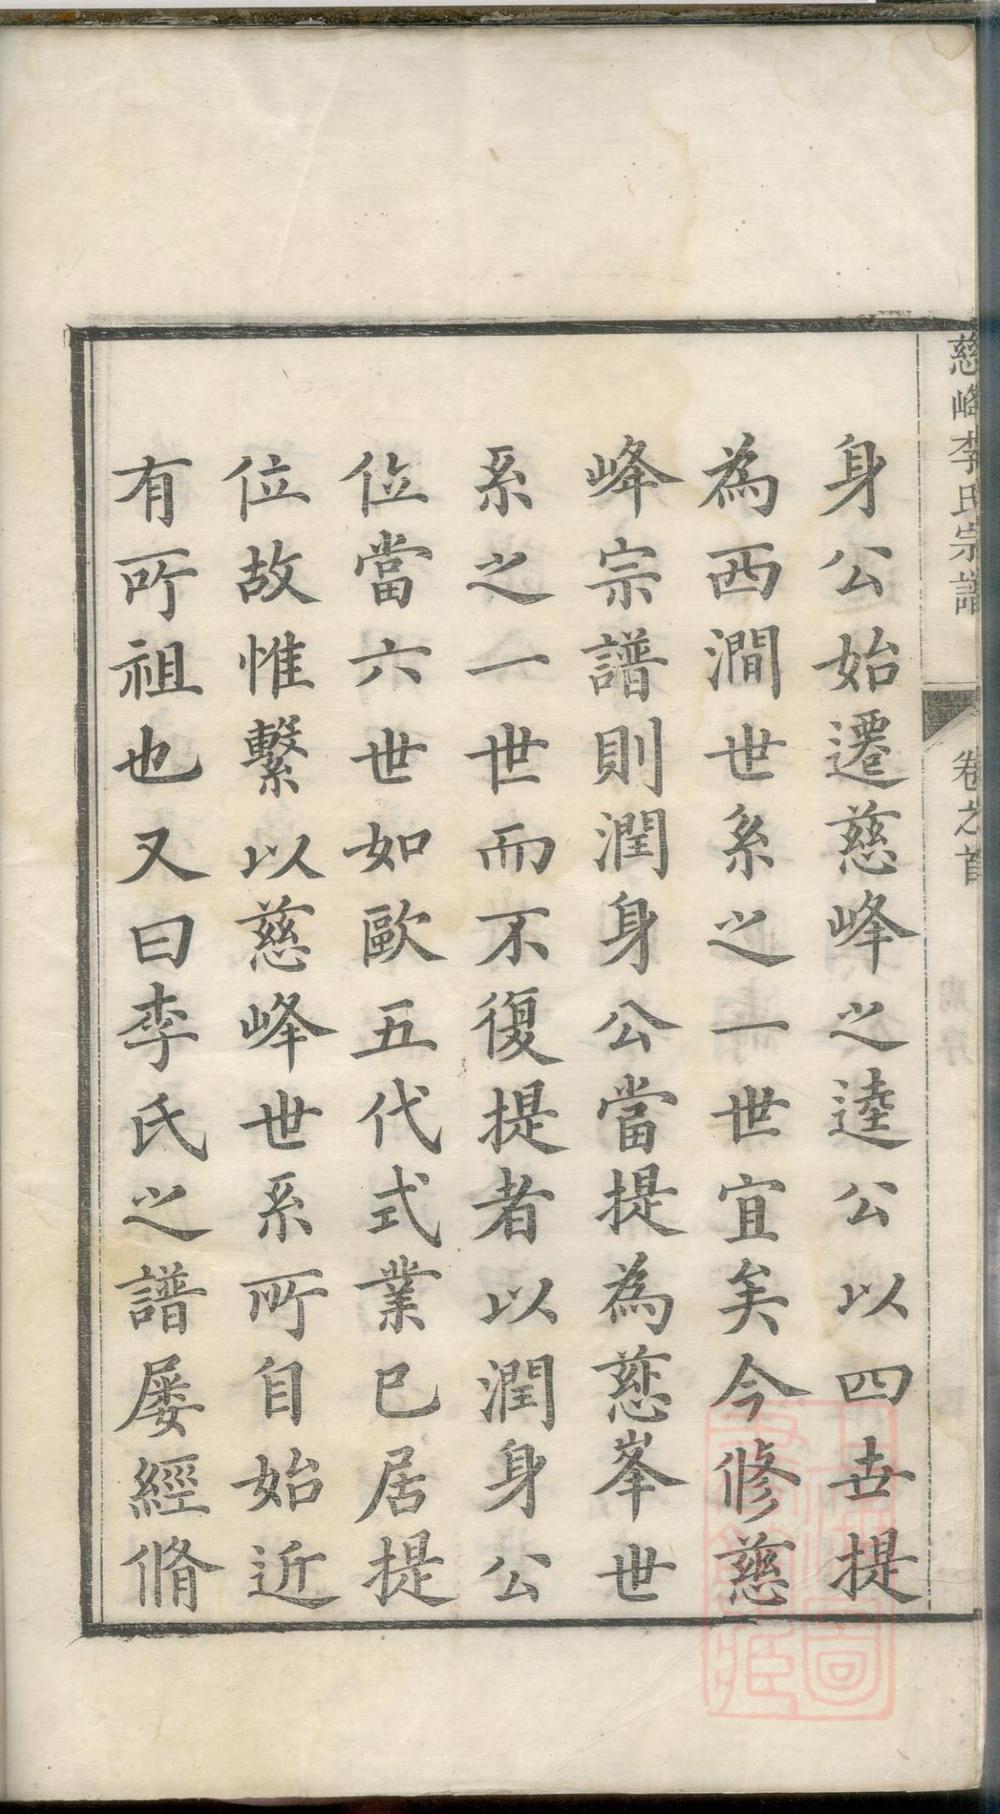 慈峰李氏宗譜
卷之首
身公始遷慈峰之逵公以四世提
為西澗世系之一世宜矣今修慈
峰宗譜則潤身公當提為慈峯世
系之一世而不復提者以潤身公
位當六世如歐五代式業已居提
位故惟繫以慈峰世系所自始近
有所祖也又曰李氏之譜屡經脩